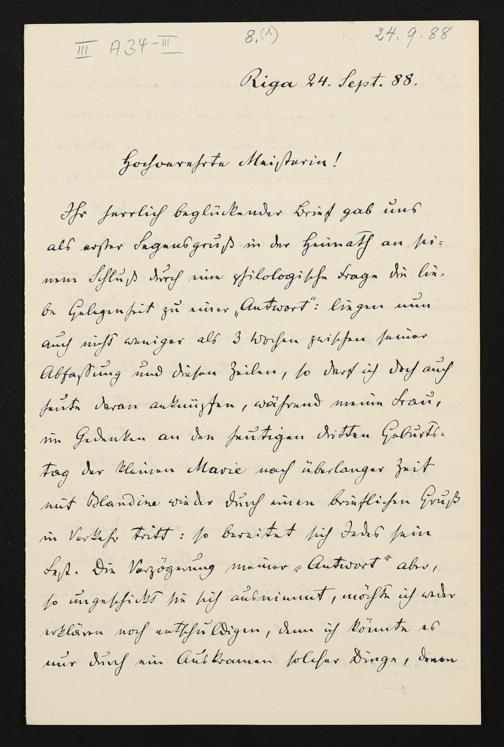 III A34-III
8.(1)
24.9.88
Riga 24. Sept. 88.
Hochverehrte Meisterin!
Ihr herrlich beglückender Brief gab uns
als erster Segensgruß in der Heimath an sei-
nem Schluß durch eine philologische Frage die lie-
be Gelegenheit zu einer „Antwort“: liegen nun
auch nicht weniger als 3 Wochen zwischen seiner
Abfassung und diesen Zeilen, so darf ich doch auch
heute daran anknüpfen, während meine Frau,
im Gedenken an den heutigen dritten Geburts-
tag der kleinen Marie nach überlanger Zeit
mit Blandine wieder durch einen brieflichen Gruß
in Verkehr tritt: so bereitet sich Jedes sein
Fest. Die Verzögerung meiner „Antwort“ aber,
so ungeschickt sie sich ausnimmt, möchte ich weder
erklären noch entschuldigen, denn ich könnte es
nur durch ein Auskramen solcher Dinge, denen